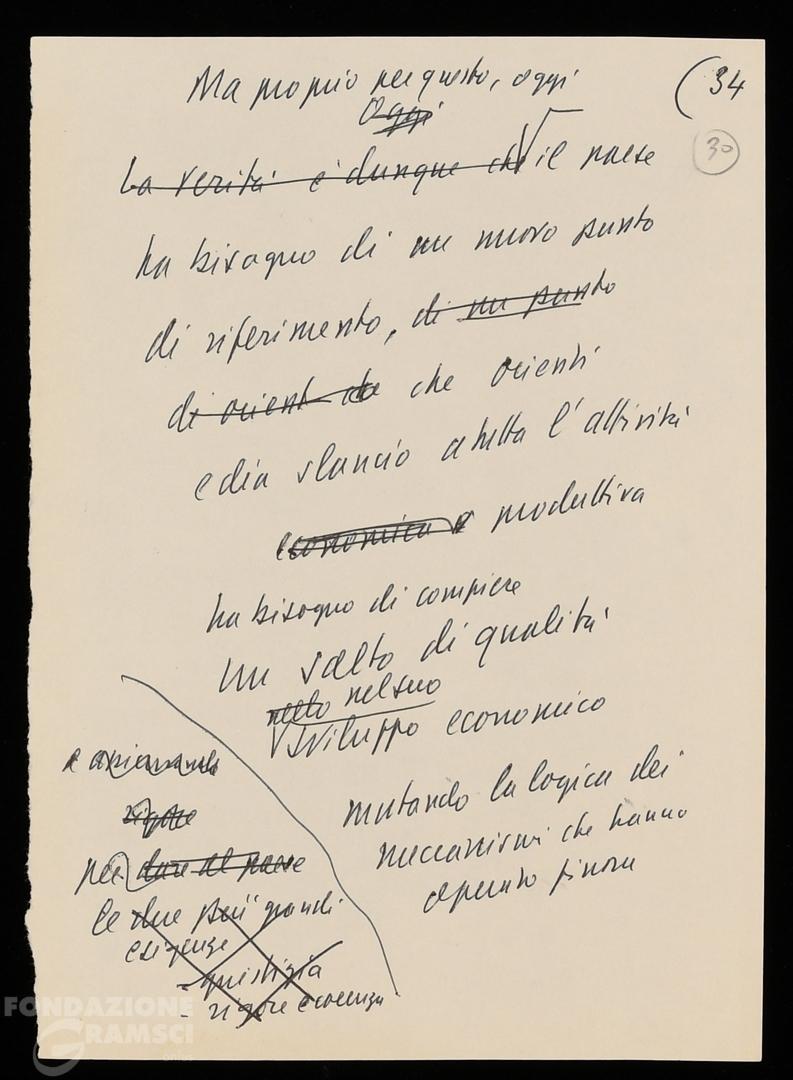 (34
30
Ma proprio per questo, oggi
Oggi
La verità è dunque che il paese
ha bisogno di un nuovo punto
di riferimento, di un punto
di orient che orienti
e dia slancio a tutta l'attività
economica e produttiva
ha bisogno di compiere
un salto di qualità
nello nel suo
sviluppo economico
mutando la logica dei
meccanismi che hanno
operato finora
e
rigore
per dare al paese
le due più grandi
esigenze
- giustizia
- rigore e coerenza
FONDAZIONE
GRAMSCI
onlus